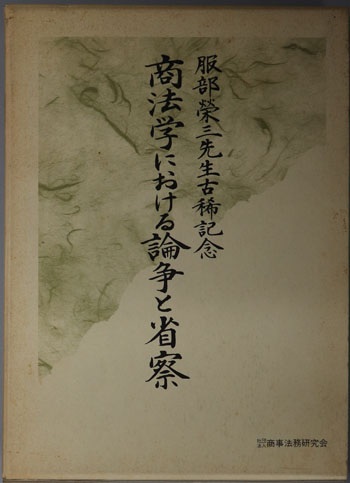 服部榮三先生古稀記念
商法学における論争と省察
社団法人商事法務研究会